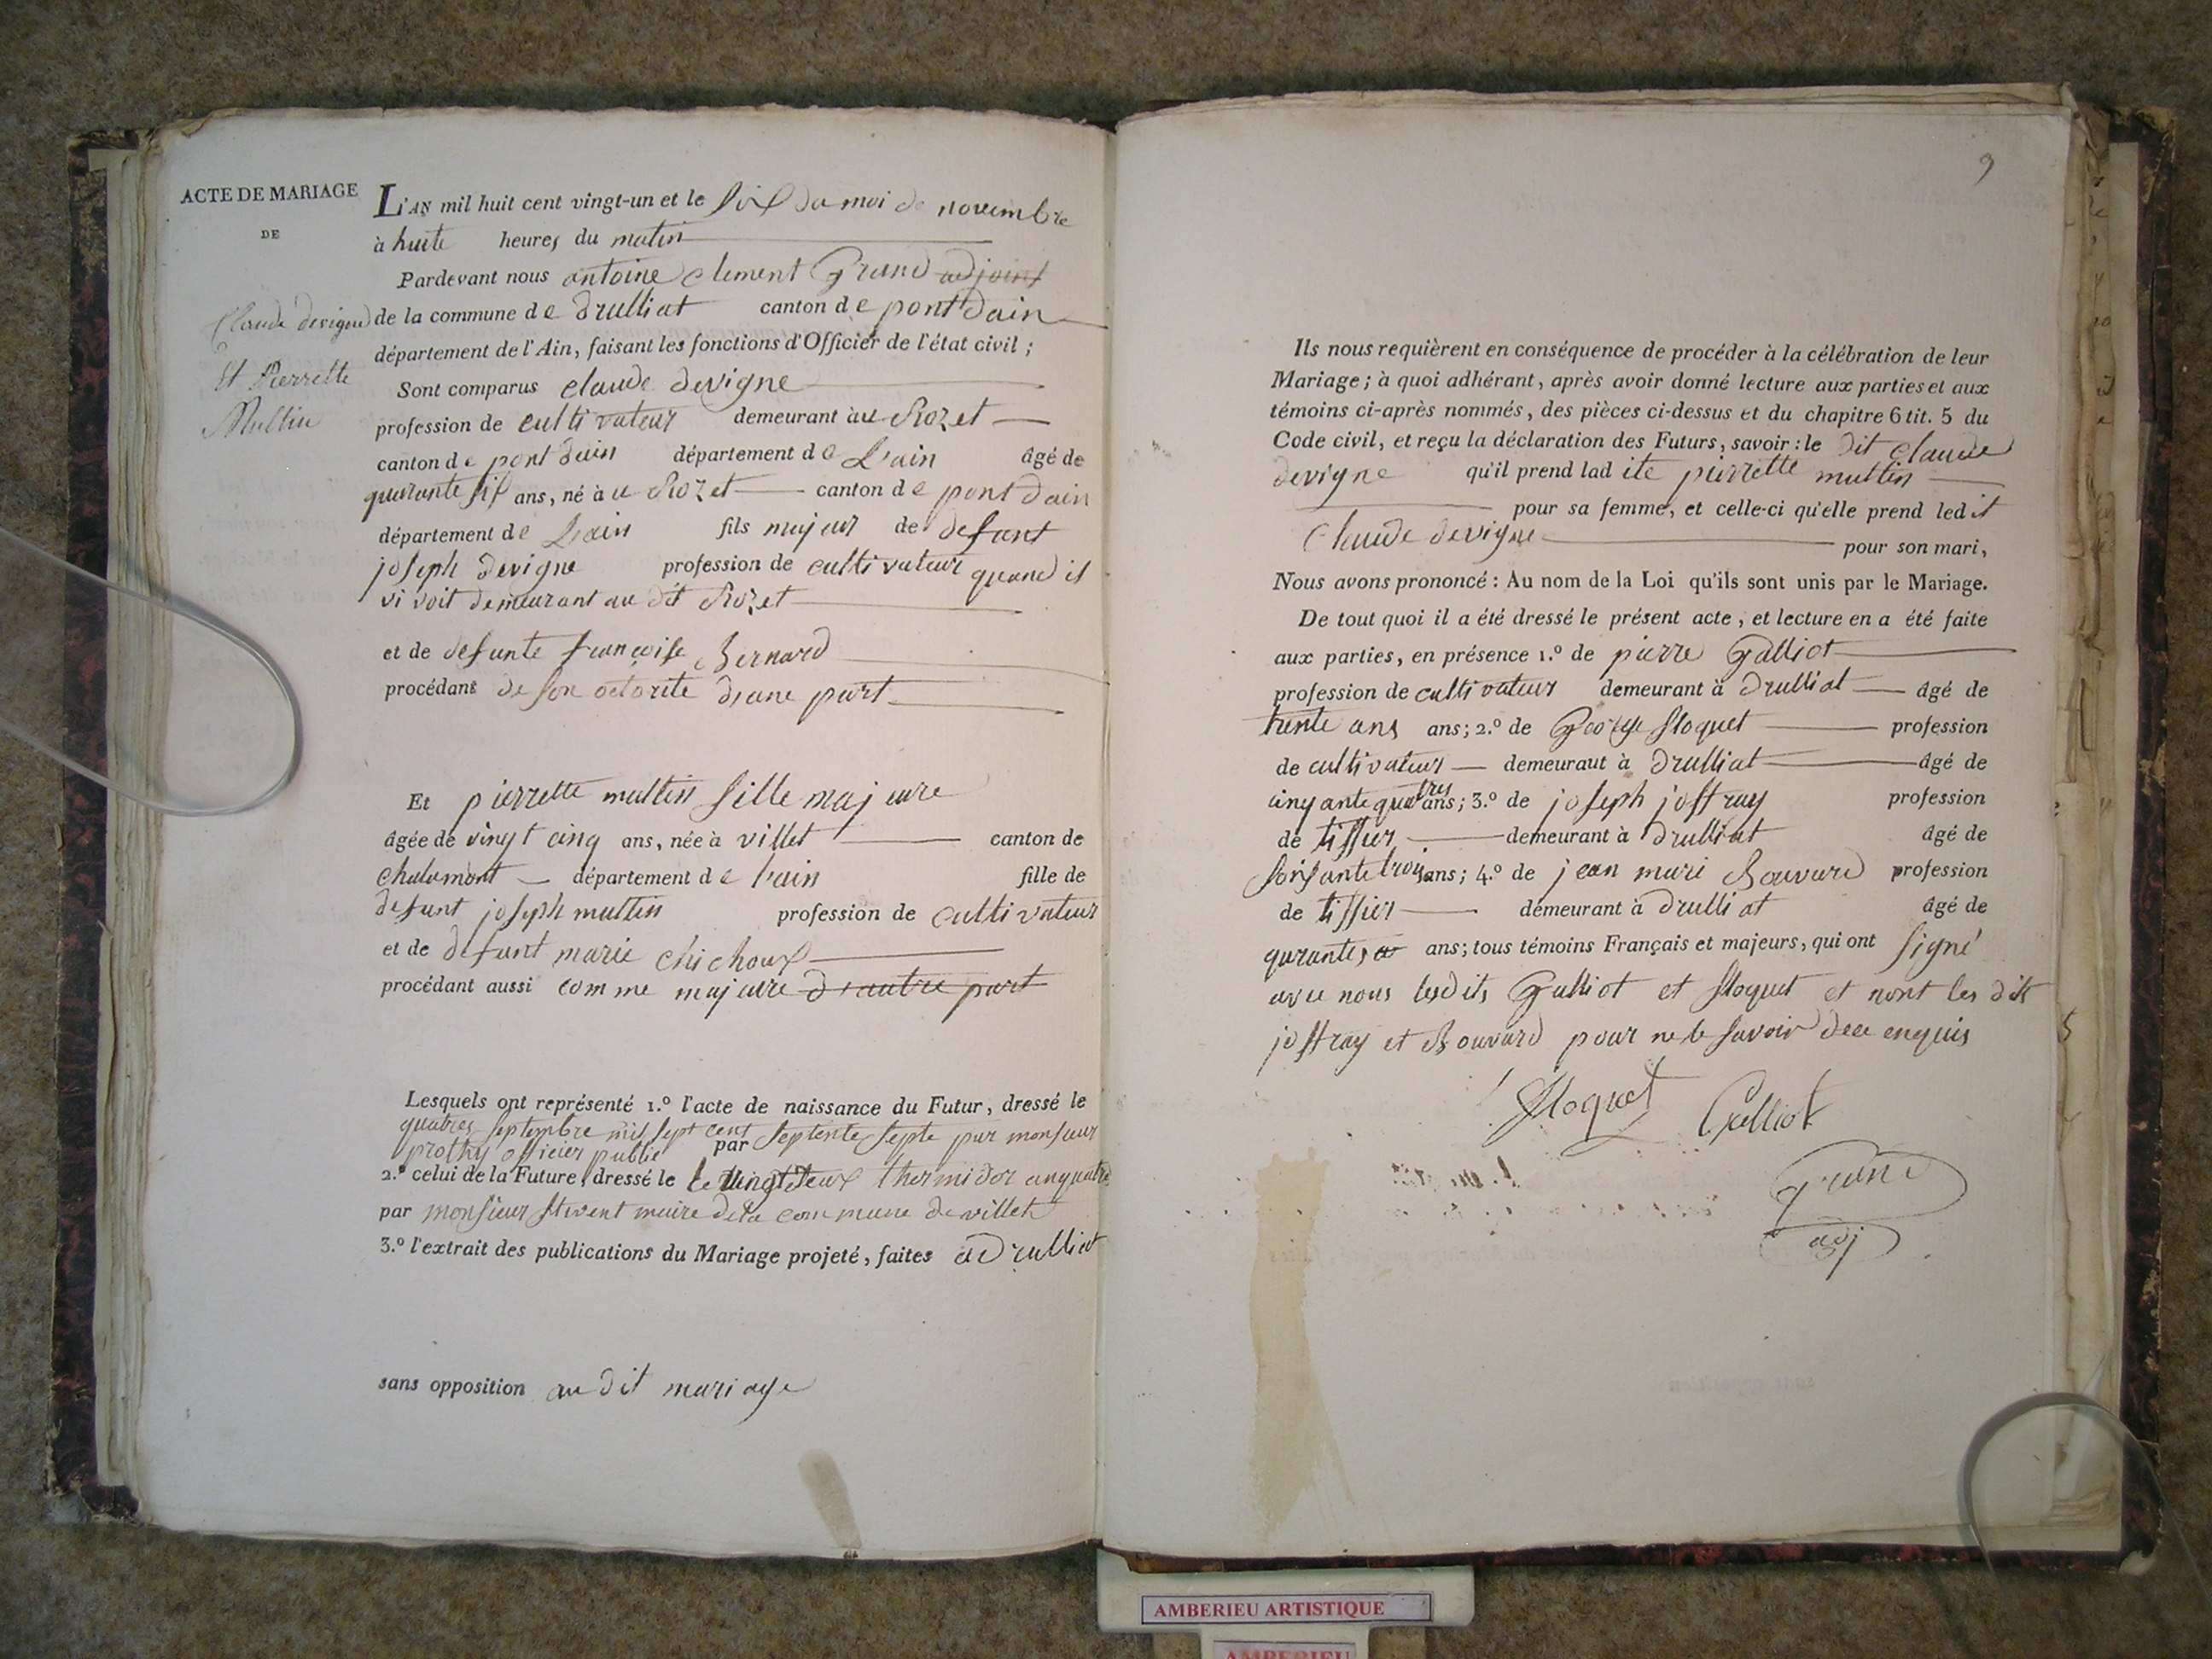 ACTE DE MARIAGE
DE
Claude devigne
Et Pierrette
Multin
L'AN mil huit cent vingt-un et le six du moi de novembre
à huite heures du matin
Pardevant nous antoine clement Grand adjoint
de la commune de Drulliat canton de pont Dain
département de l'Ain, faisant les fonctions d'Officier de l'état civil ;
Sont comparus claude devigne
profession de cultivateur demeurant au Rozet
canton de pont dain département de L'ain âgé de
quarante six ans, né à u Rozet canton de pont Dain
département de L'ain fils majeur de defunt
joseph devigne profession de cultivateur quand il
vivoit demeurant au dit Rozet
et de defunte francoise Bernard
procédant de son octorite d'une part
Et pierrette multin fille majeure
âgée de vingt cinq ans, née à villet canton de
chalamont département de l'ain fille de
defunt joseph multin profession de cultivateur
et de defunt marie chichoux
procédant aussi comme majeure d'autre part
Lesquels ont représenté 1.º l'acte de naissance du Futur, dressé le
quatres septembre mil sept cent septente septe par monsieur
prothy officier public par
2.º celui de la Future, dressé le le vingt deux thermidor an quatre
par monsieur maire de la commune de villet
3.º l'extrait des publications du Mariage projeté, faites a Drulliat
sans opposition au dit mariage
9
Ils nous requièrent en conséquence de procéder à la célébration de leur
Mariage ; à quoi adhérant, après avoir donné lecture aux parties et aux
témoins ci-après nommés, des pièces ci-dessus et du chapitre 6 tit. 5 du
Code civil, et reçu la déclaration des Futurs, savoir : le dit claude
devigne qu'il prend ladite pierrette multin
pour sa femme, et celle-ci qu'elle prend ledit
Claude devigne pour son mari,
Nous avons prononcé : Au nom de la Loi qu'ils sont unis par le Mariage.
De tout quoi il a été dressé le présent acte, et lecture en a été faite
aux parties, en présence 1.º de pierre Galliot
profession de cultivateur demeurant à Drulliat âgé de
trente ans ans ; 2.º de George floquet profession
de cultivateur demeuraut à Drulliat âgé de
cinqante quatres ans ; 3.º de joseph joffray profession
de tissier demeurant à Drulliat âgé de
soixante trois ans ; 4.º de jean mari Bouvard profession
de tissier demeurant à Drulliat âgé de
qurante ans ; tous témoins Français et majeurs, qui ont signé
avec nous lesdits Galliot et floquet et nont les dits
joffray et Bouvard pour ne le savoir dece enquis
floquet Galliot
Grand
adj
AMBERIEU ARTISTIQUE
AMBERIEU